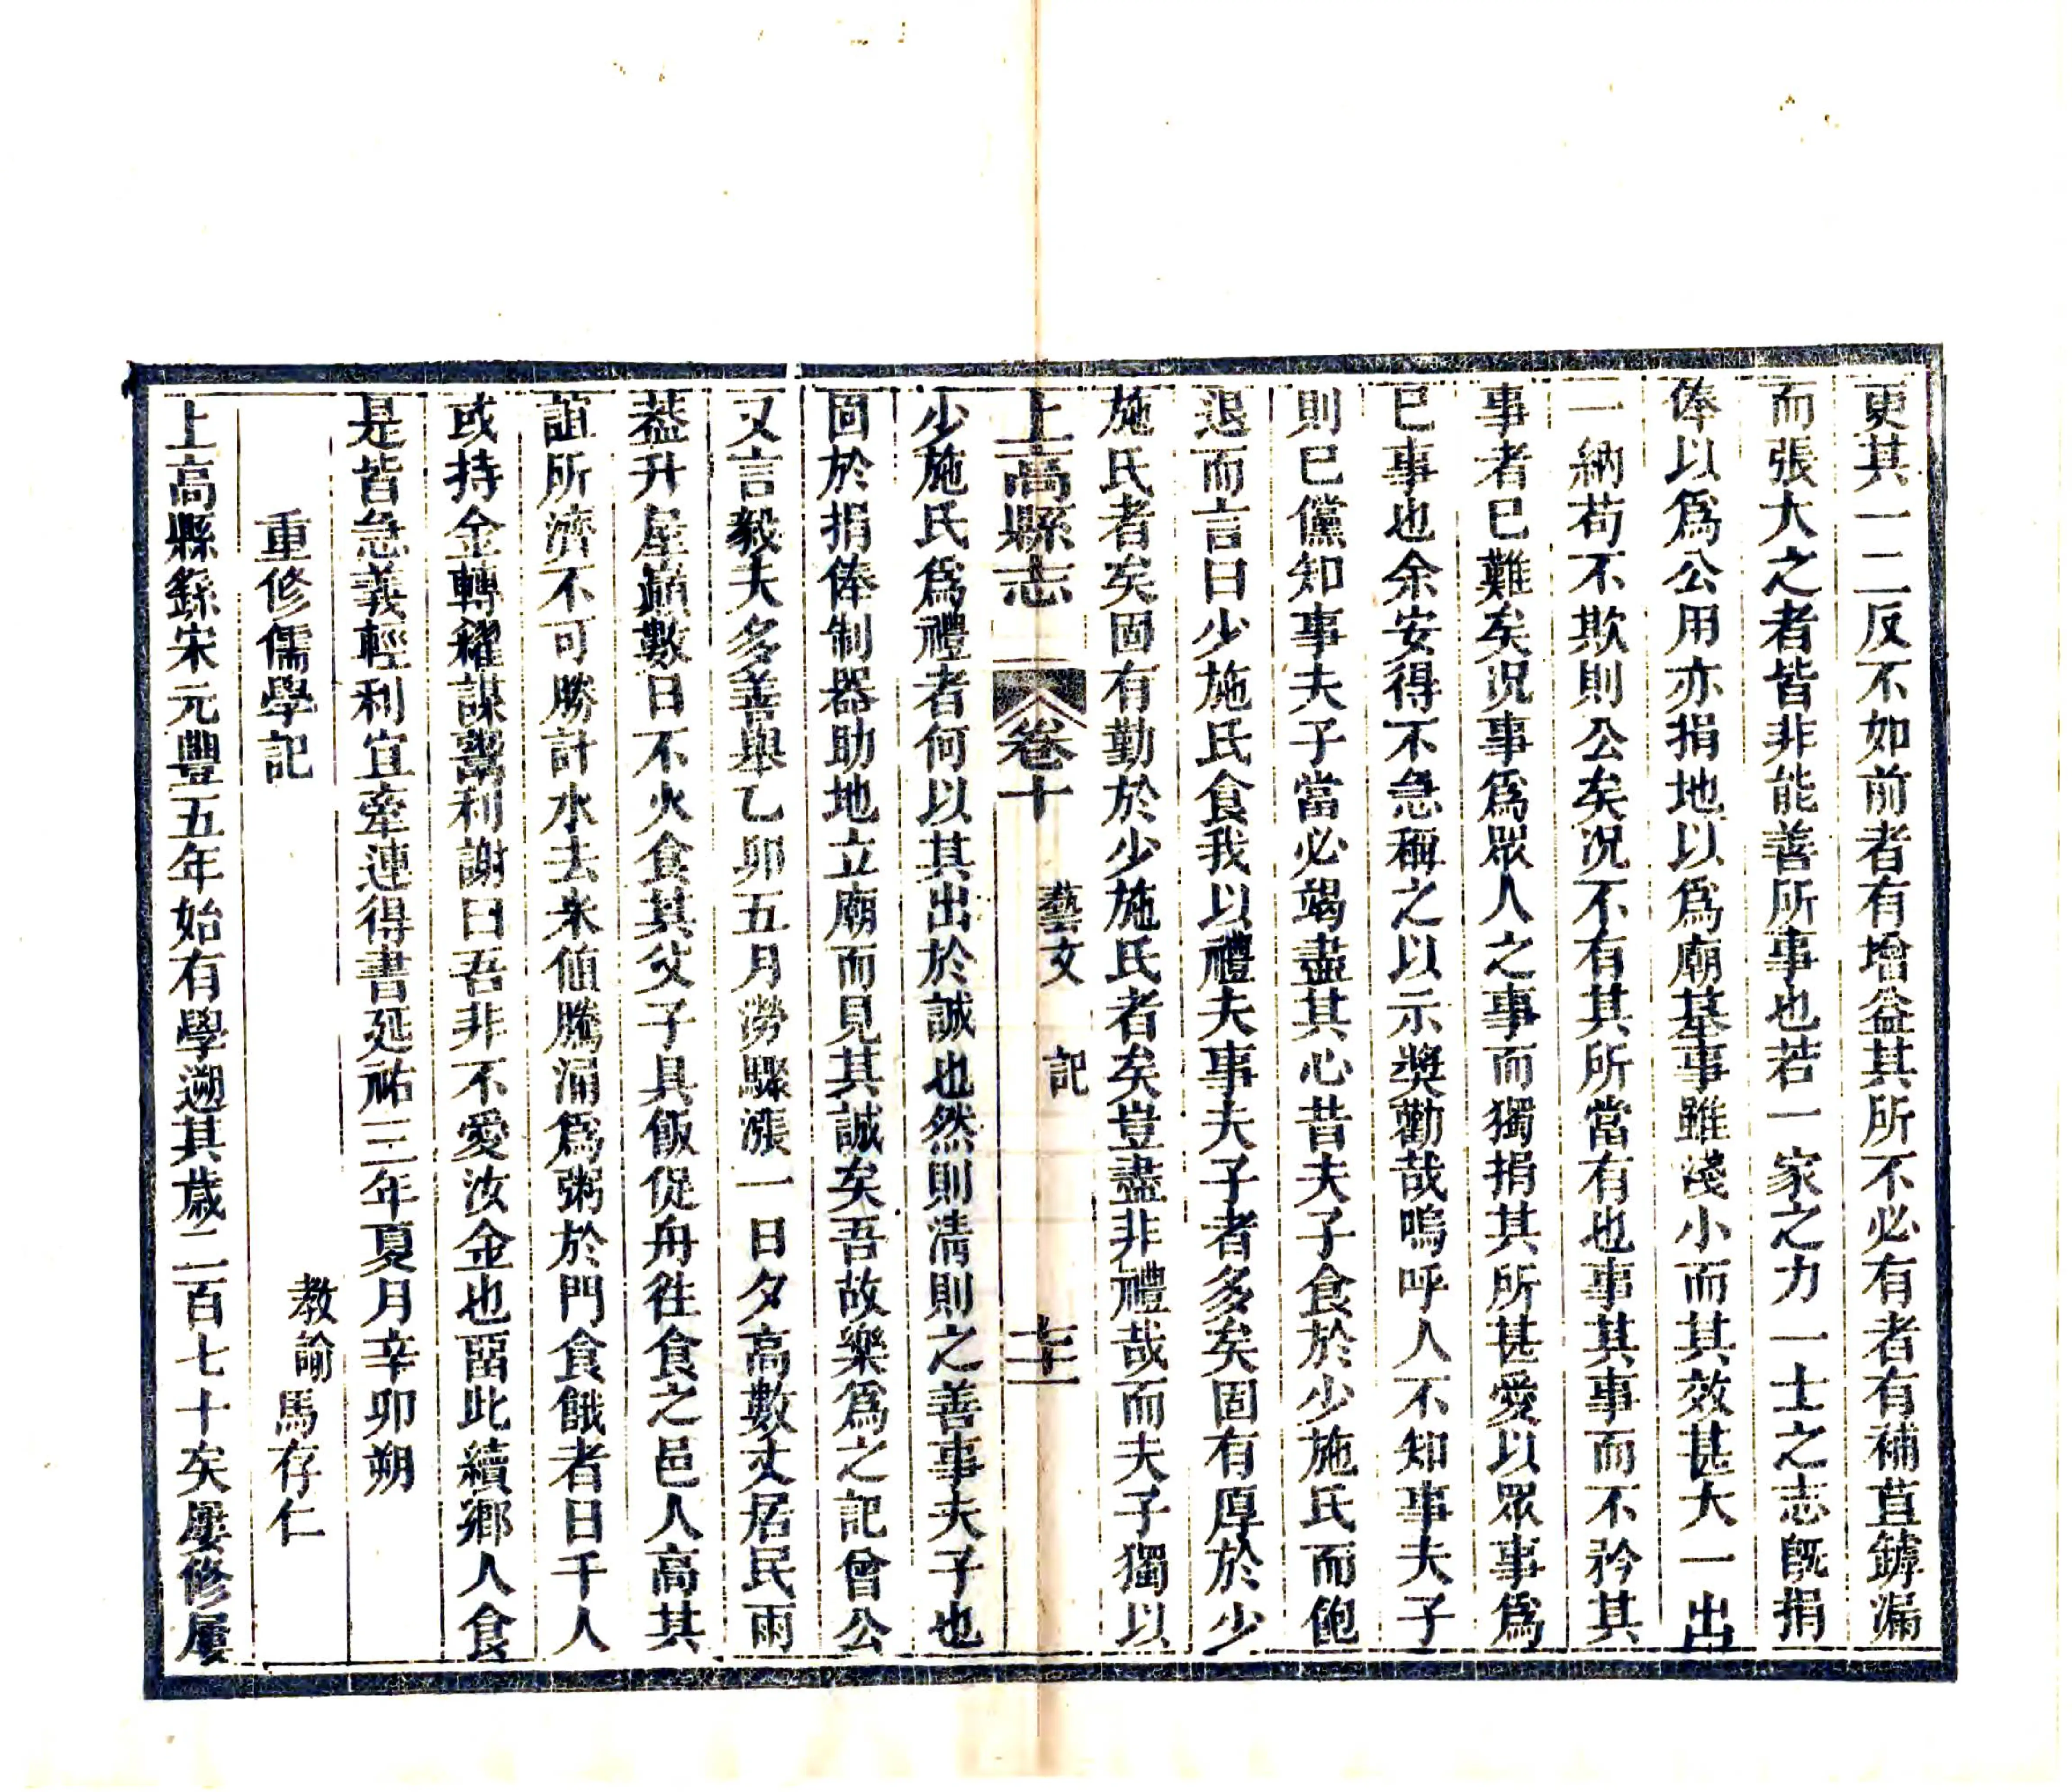 更其一二反不如前者有增益其所不必有者有補苴鏬漏
而張大之者皆非能善所事也若一家之力一士之志旣捐
俸以爲公用亦捐地以爲廟基事雖淺小而其效甚大一出
一納苟不欺則公矣況不有其所當有也事其事而不矜其
事者已難矣況事爲眾人之事而獨捐其所甚愛以眾事爲
已事也余安得不急稱之以示獎勸哉嗚呼人不知事夫子
則已儻知事夫子當必竭盡其心昔夫子食於少施氏而飽
退而言曰少施氏食我以禮夫事夫子者多矣固有厚於少
施氏者矣固有勤於少施氏者矣豈盡非禮哉而夫子獨以
上高縣志 卷十 藝文 記 七十一
少施氏爲禮者何以其出於誠也然則淸則之善事夫子也
固於捐俸制器助地立廟而見其誠矣吾故樂爲之記曾公
又言毅夫多善舉乙卯五月澇驟漲一日夕高數丈居民雨
葢升屋巔數日不火食其父子具飯促舟往食之邑人高其
誼所濟不可勝計水去米値騰涌爲粥於門食餓者日千人
或持金轉糴謀鬻利謝曰吾非不愛汝金也畱此續鄉人食
是皆急義輕利宜牽連得書延祐三年夏月辛卯朔
重修儒學記 教諭馬存仁
上高縣繇宋元豐五年始有學遡其歲二百七十矣屢修屢